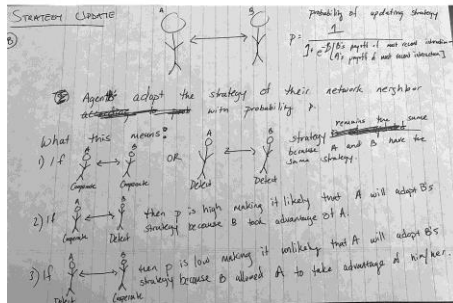 STRATEGY UPDATE
B
A B
probability of updating strategy
P= 1
1+ e^-β[B's payoff of most recent interaction -
[A's payoff of most recent interaction]
Agents adopt the strategy of their network neighbor
with probability p.
What this means:
1) If A B OR A B strategy remains the same
because A and B have the
same strategy.
Cooperate Cooperate Defect Defect
2) If A B then p is high making it likely that A will adopt B's
strategy because B took advantage of A.
Cooperate Defect
3) If A B then p is low making it unlikely that A will adopt B's
strategy because B allowed A to take advantage of him/her.
Defect Cooperate